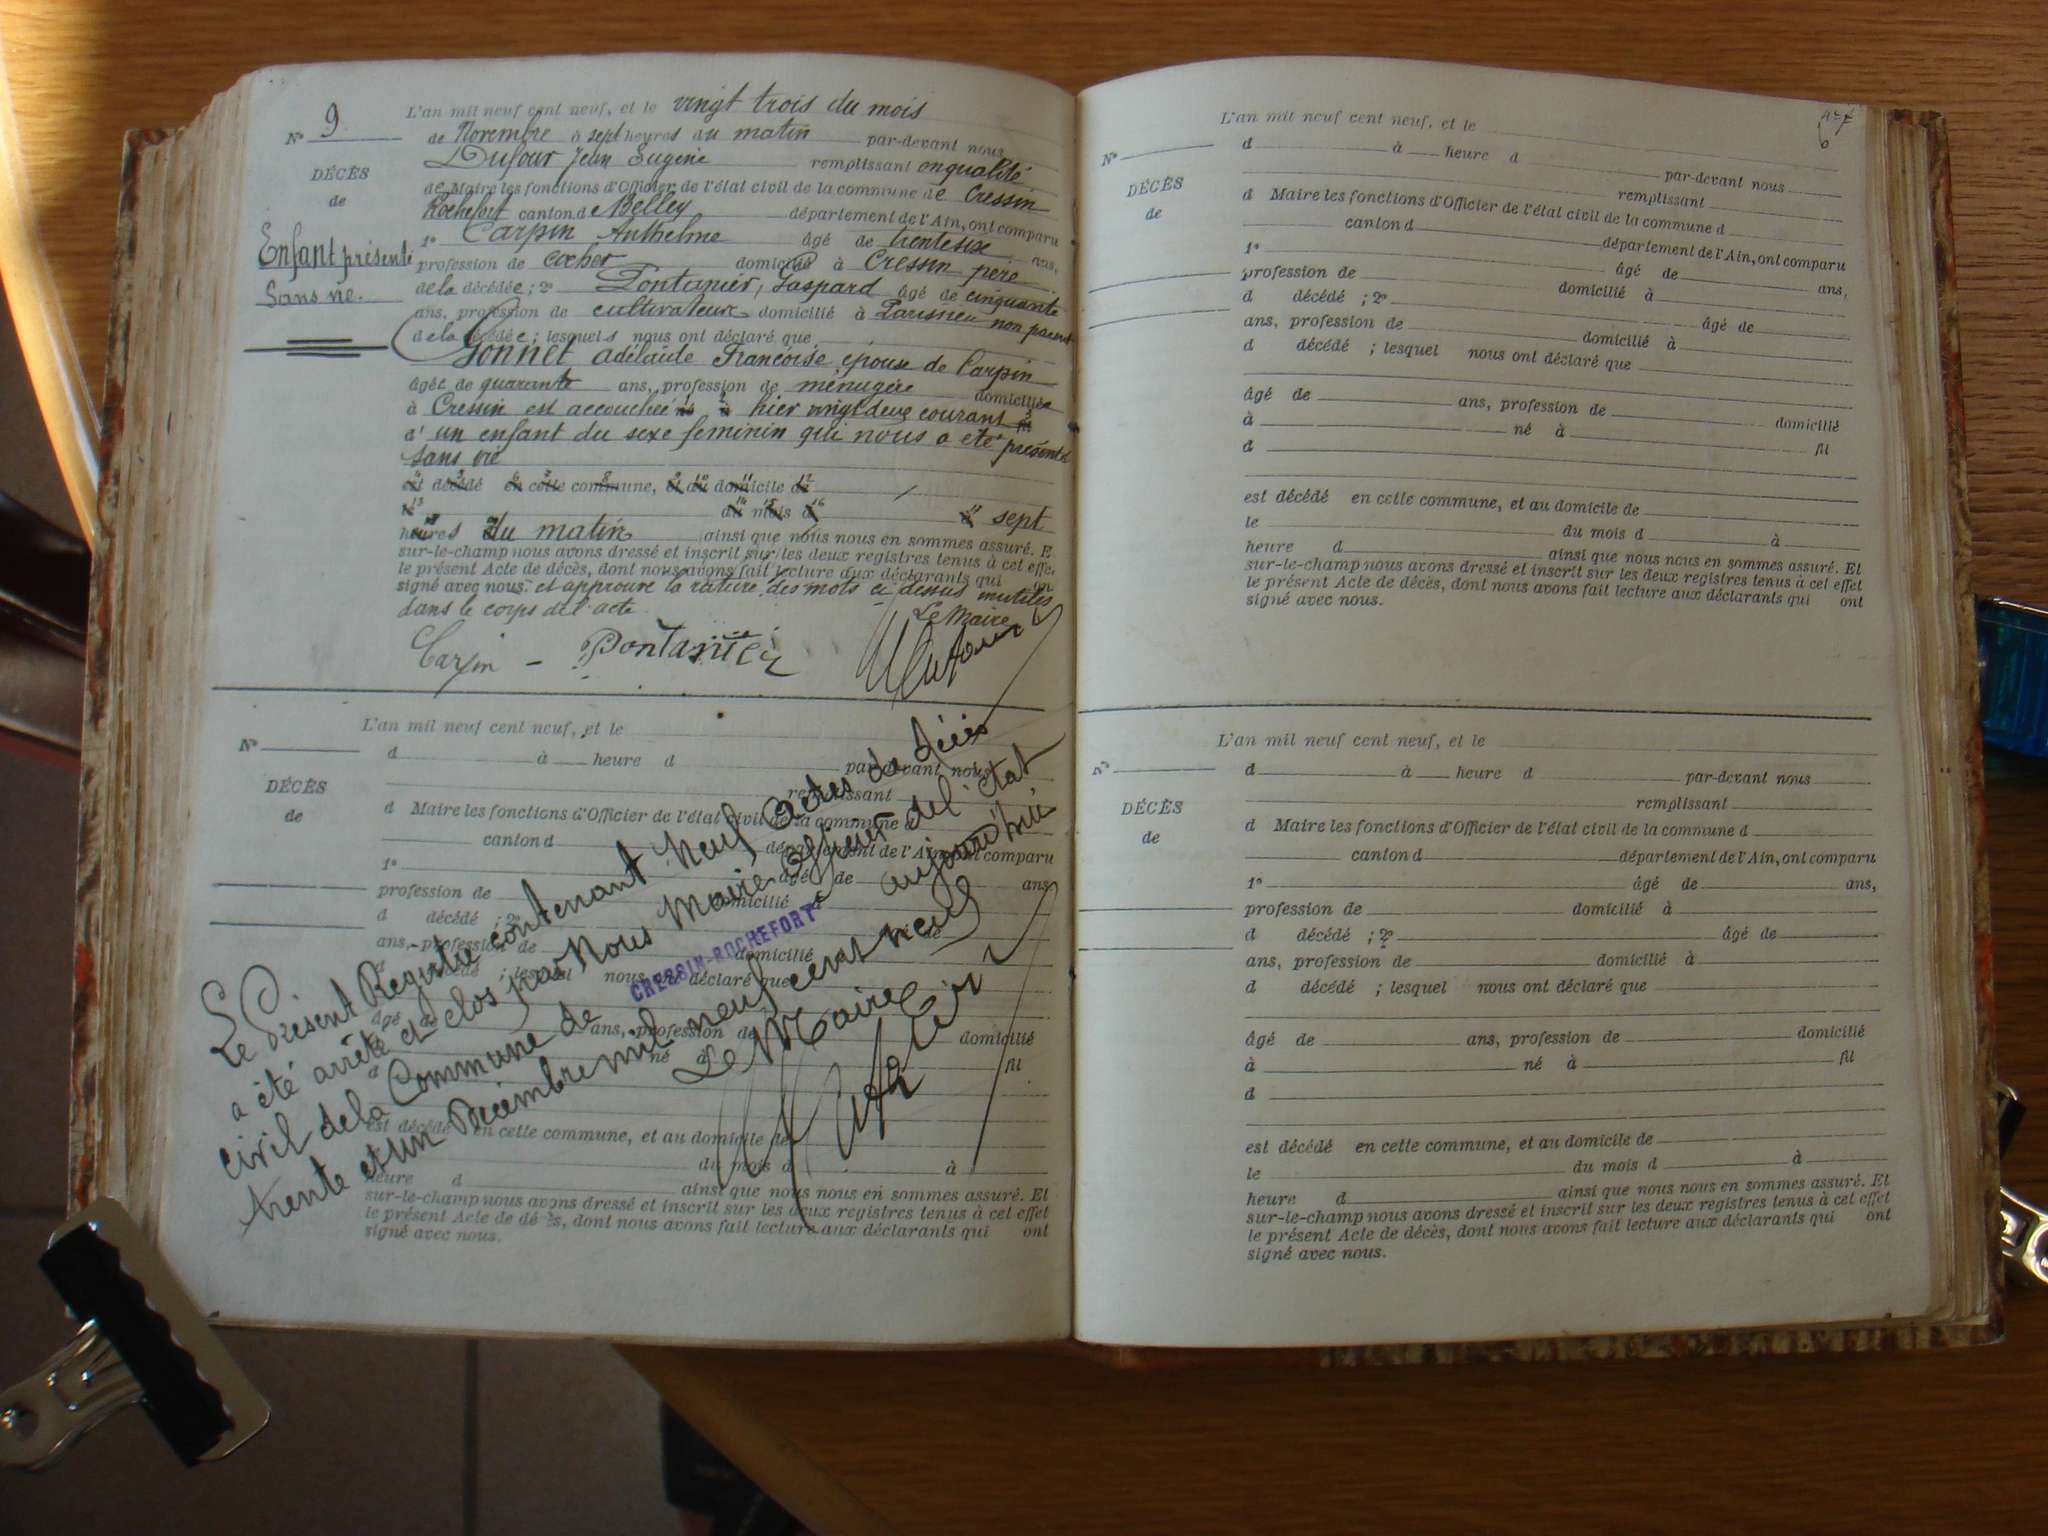 L'an mil neuf cent neuf, et le vingt trois du mois
N° 9
de Novembre à sept heures du matin par-devant nous
Dufour Jean Eugène remplissant en qualité
DÉCÈS
de Maire les fonctions d'Officier de l'état civil de la commune de Cressin
de
Rochefort canton d Belley département de l'Ain, ont comparu
1° Carpin Anthelme âgé de trente six ans,
Enfant présenté
profession de cocher domicilié à Cressin père
Sans vie.
de la décédée ; 2° Pontanier, Gaspard âgé de cinquante
ans, profession de cultivateur domicilié à Parissieu non parent
de la décédée ; lesquels nous ont déclaré que
Gonnet adélaïde Françoise épouse de Carpin
âgée de quarante ans, profession de ménagère domiciliée
à Cressin est accouchée hier vingt deux courant
d'un enfant du sexe feminin qui nous a été présenté
sans vie
est décédé en cette commune, et au domicile de
le du mois d à sept
heures du matin ainsi que nous nous en sommes assuré. E
sur-le-champ nous avons dressé et inscrit sur les deux registres tenus à cet effet
le présent Acte de décès, dont nous avons fait lecture aux déclarants qui on
signé avec nous. et approuvé la rature des mots ci dessus inutiles
dans le corps de l'acte
Le Maire
Carpin - Pontanier
L'an mil neuf cent neuf, et le
N°
d à heure d par-devant nous
remplissant
DÉCÈS
d Maire les fonctions d'Officier de l'état civil de la commune d
de
canton d département de l'Ain, ont comparu
1° âgé de ans,
profession de domicilié à
d décédé ; 2° âgé de
ans, profession de domicilié à
d décédé ; lesquel nous ont déclaré que
âgé de ans, profession de domicilié
à né à fil
d
est décédé en cette commune, et au domicile de
le du mois d à
heure d ainsi que nous nous en sommes assuré. Et
sur-le-champ nous avons dressé et inscrit sur les deux registres tenus à cet effet
le présent Acte de décès, dont nous avons fait lecture aux déclarants qui ont
signé avec nous.
Le Présent Registre contenant Neuf actes de décès
a été arrêté et clos par Nous Maire Officier de l'état
civil de la Commune de CRESSIN-ROCHEFORT aujourd'hui
trente et un Décembre mil neuf cent neuf
Le Maire
L'an mil neuf cent neuf, et le
N°
d à heure d par-devant nous
remplissant
DÉCÈS
d Maire les fonctions d'Officier de l'état civil de la commune d
de
canton d département de l'Ain, ont comparu
1° âgé de ans,
profession de domicilié à
d décédé ; 2° âgé de
ans, profession de domicilié à
d décédé ; lesquel nous ont déclaré que
âgé de ans, profession de domicilié
à né à fil
d
est décédé en cette commune, et au domicile de
le du mois d à
heure d ainsi que nous nous en sommes assuré. Et
sur-le-champ nous avons dressé et inscrit sur les deux registres tenus à cet effet
le présent Acte de décès, dont nous avons fait lecture aux déclarants qui ont
signé avec nous.
L'an mil neuf cent neuf, et le
N°
d à heure d par-devant nous
remplissant
DÉCÈS
d Maire les fonctions d'Officier de l'état civil de la commune d
de
canton d département de l'Ain, ont comparu
1° âgé de ans,
profession de domicilié à
d décédé ; 2° âgé de
ans, profession de domicilié à
d décédé ; lesquel nous ont déclaré que
âgé de ans, profession de domicilié
à né à fil
d
est décédé en cette commune, et au domicile de
le du mois d à
heure d ainsi que nous nous en sommes assuré. Et
sur-le-champ nous avons dressé et inscrit sur les deux registres tenus à cet effet
le présent Acte de décès, dont nous avons fait lecture aux déclarants qui ont
signé avec nous.